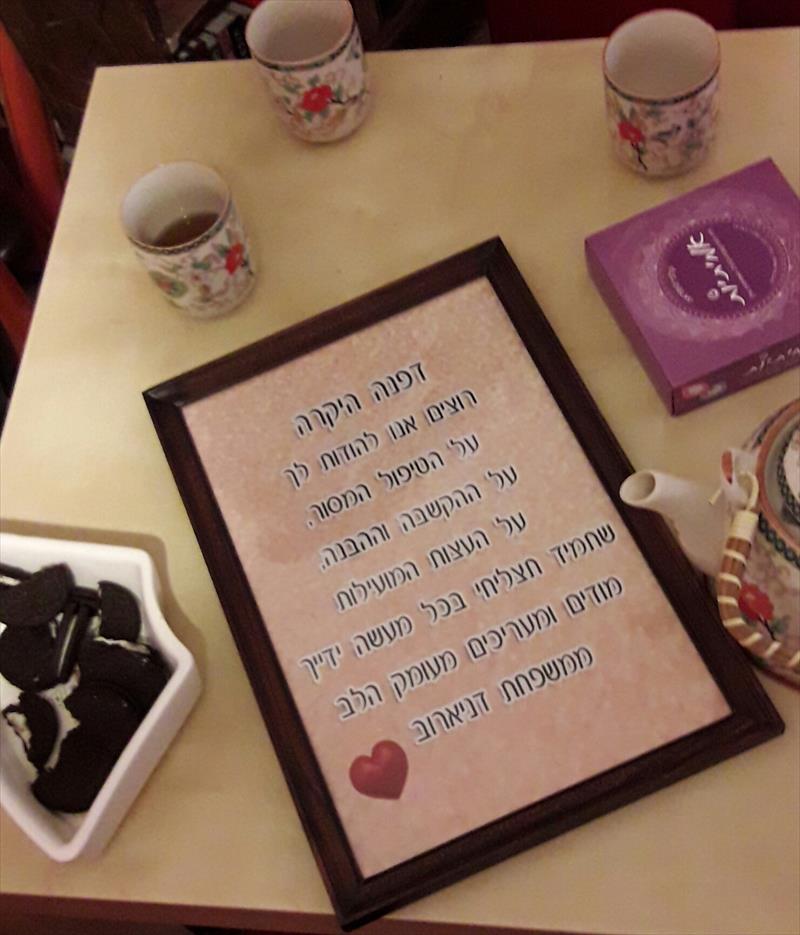 דפנה היקרה
רוצים אנו להודות לך
על הטיפול המסור,
על ההקשבה וההבנה,
על העצות המועילות
שתמיד תצליחי בכל מעשה ידייך
מודים ומעריכים מעומק הלב
ממשפחת דניארוב